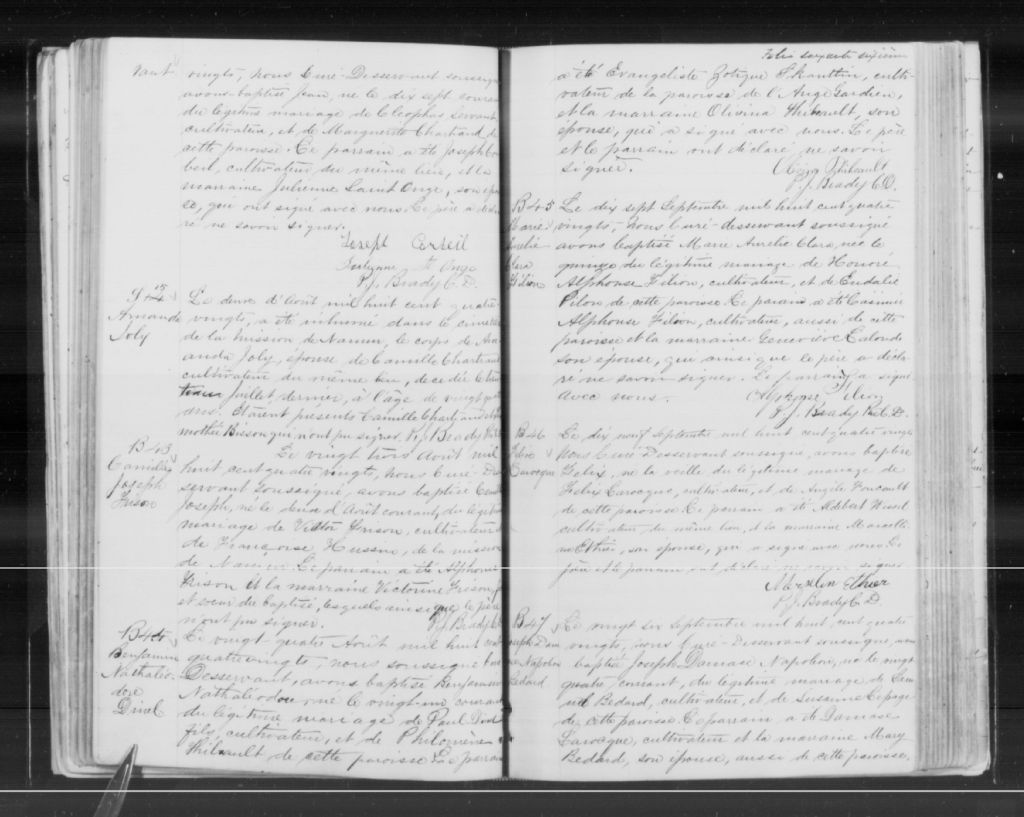 vingts, nous Curé-Desservant soussigné
avons baptisé Jean, né le dix sept courant
du légitime mariage de Cleophas Servant
cultivateur, et de Marguerite Chartrand de
cette paroisse. Le parrain a été Joseph Cor
beil, cultivateur du même lieu, et la
marraine Julienne Saint Onge, son épou
se, qui ont signé avec nous. Le père a décla
ré ne savoir signer.
Joseph Corbeil
St Onge
P.J. Brady C.D.
Amanda
Joly
Le deux d'Août mil huit cent quatre
vingts, a été inhumé dans le cimetière
de la mission de Namur, le corps de Ama
anda Joly, épouse de Camille Chartrand
cultivateur du même lieu, décédée le
Juillet dernier, à l'âge de vingt
ans. Etaient présents Camille Chartrand et
mothé Bisson qui n'ont pu signer. P.J. Brady
B43
Camille
Joseph
Frison
Le vingt trois Août mil
huit cent quatre vingts, nous Curé Des
servant soussigné, avons baptisé Camille
Joseph, né le deux d'Août courant, du légitime
mariage de Victor Frison, cultivateur
de Françoise Hussin, de la mission
de Namur. Le parrain a été Alphonse
Frison et la marraine Victorine Frison
et soeur du baptisé, lesquels ainsi que le père
n'ont pu signer. P.J. Brady
B44
Benjamin
Nathalio-
dore
Dinel
Le vingt quatre Août mil huit cent
quatre vingts, nous soussigné Curé
Desservant, avons baptisé Benjamin
Nathaliodore né le vingt-un courant
du légitime mariage de Paul Dinel
fils, cultivateur, et de Philomène
Thibault de cette paroisse. Le parrain
Folio soixante sixième
a été Evangeliste Zotique cultiv-
vateur de la paroisse de l'Ange Gardien,
et la marraine Olivina Thibault, son
épouse, qui a signé avec nous. Le père
et le parrain ont déclaré ne savoir
signer.
Olivina Thibault
P.J. Brady C.D.
B45
Marie
Aurélie
Clara
Filion
Le dix sept Septembre mil huit cent quatre
vingts, nous Curé-desservant soussigné
avons baptisé Marie Aurélie Clara, née le
quinze du légitime mariage de Honoré
Alphonse Filion, cultivateur, et de Eudalie
Pilon de cette paroisse. Le parrain a été Casimir
Alphonse Filion, cultivateur, aussi de cette
paroisse et la marraine Geneviève Lalonde
son épouse, qui ainsi que le père a décla
ré ne savoir signer. Le parrain a signé
avec nous.
Alphonse Filion
P.J. Brady C.D.
B46
Félix
Larocque
Le dix neuf Septembre mil huit cent quatre vingt
nous Curé Desservant soussigné, avons baptisé
Felix, né la veille du légitime mariage de
Felix Larocque, cultivateur, et de Angèle Foucault
de cette paroisse. Le parrain a été Aldebert
cultivateur, du même lieu, et la marraine Marcelli
ne Ethier, son épouse, qui a signé avec nous. Le
père et le parrain ont déclaré ne savoir signer
Ethier
P.J. Brady C.D.
B47
Joseph Dam
ase Napoléon
Bedard
Le vingt six septembre mil huit cent quatre
vingts, nous Curé-Desservant soussigné, avons
baptisé Joseph Damase Napoléon, né le vingt
quatre courant, du légitime mariage de Sam
uel Bedard, cultivateur, et de Susanne Lepage
de cette paroisse. Le parrain a été Damase
Larocque, cultivateur et la marraine Mary
Bedard, son épouse, aussi de cette paroisse,